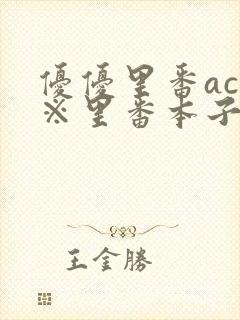 優優里番ac
※里番本子
王金勝